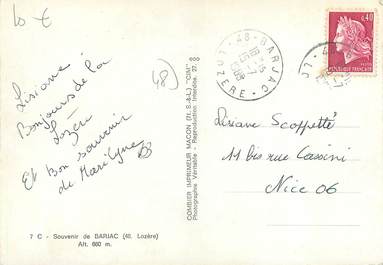 10 €
48)
Lisiane
Bonjours de la
Lozère
Et bon souvenir
de Marilyne
7 C - Souvenir de BARJAC (48. Lozère)
Alt. 660 m.
COMBIER IMPRIMEUR MACON (Pt. S.-&-L.) "CIM"
Photographie Véritable - Reproduction interdite
48 - BARJAC
LOZERE
0,40
REPUBLIQUE FRANCAISE
Lisiane Scoppetté
11 bis rue Cassini
Nice 06